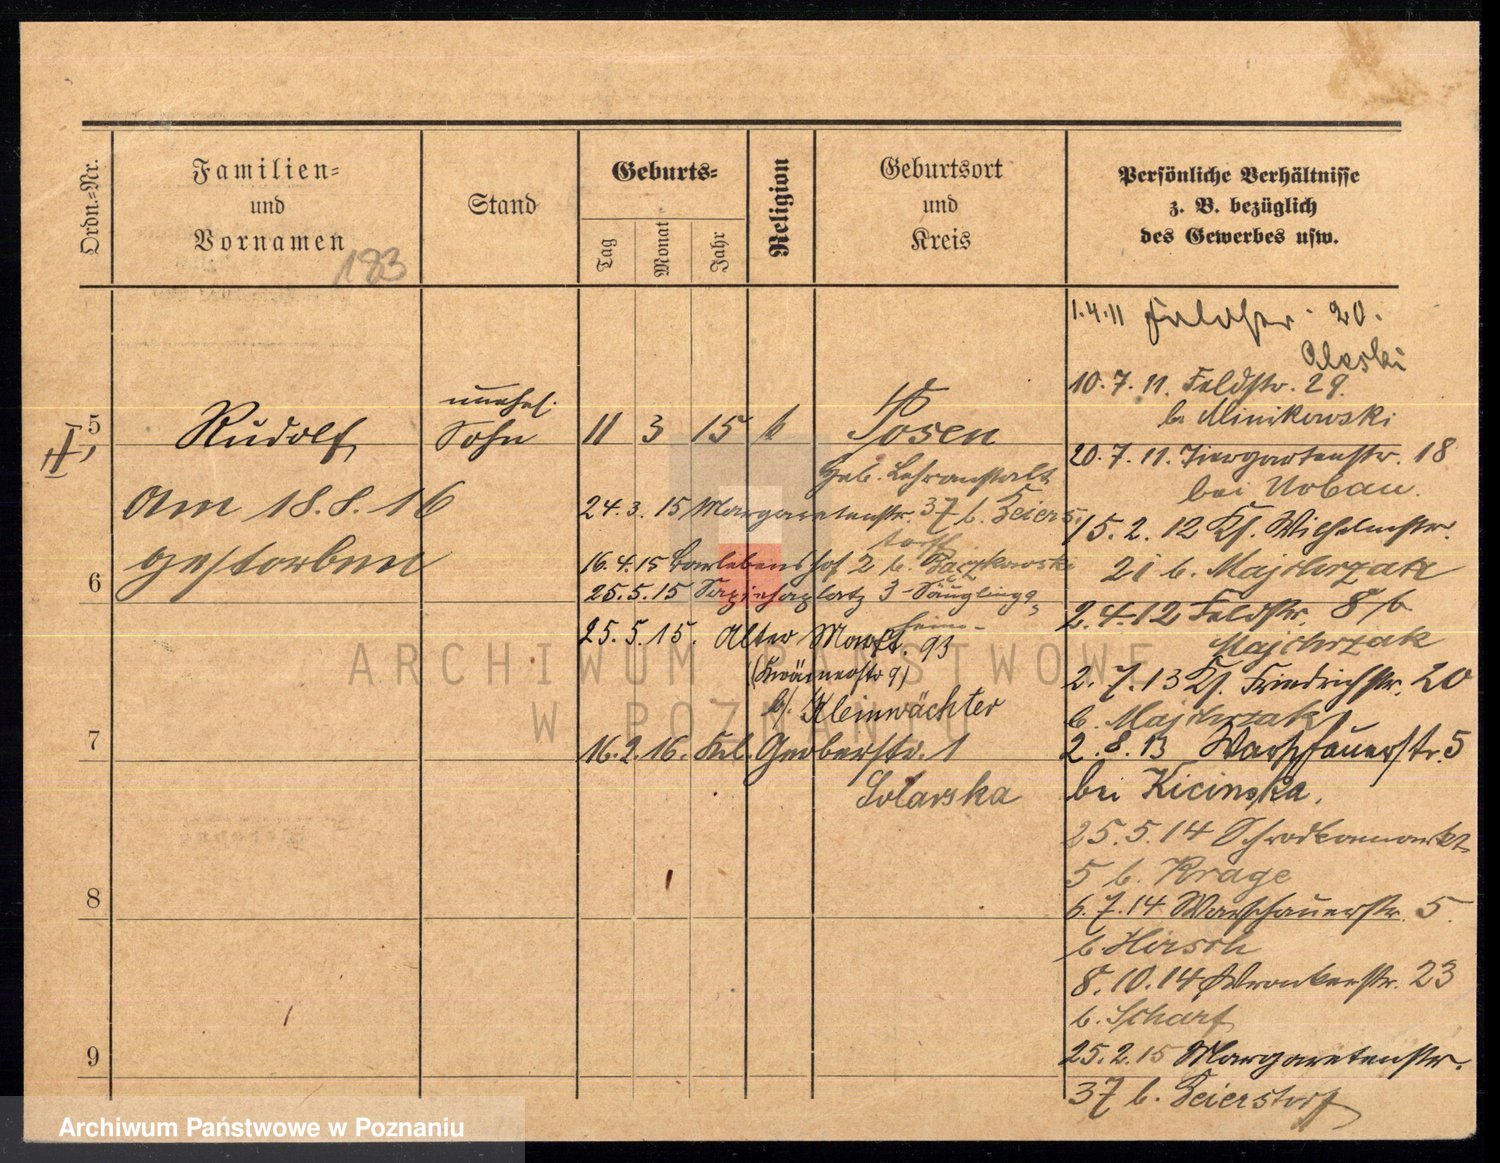 Ordn.-Nr.
Familien-
und
Vornamen
183
Stand
Geburts-
Tag
Monat
Jahr
Religion
Geburtsort
und
Kreis
Persönliche Verhältnisse
z. B. bezüglich
des Gewerbes usw.
5
II,
Rudolf
unehel.
Sohn
11 3 15 k Posen
Heb. Lehranstalt
Am 18.8.16
gestorben
24.3.15 Margaretenstr. 37 b. Feiers-
torf
16.4.15 Barlebenshof 2 b. Baczkowski
25.5.15 Sapiehaplatz 3 Säugling
heim
25.5.15. Alter Markt. 93
b/. Kleinwächter
16.2.16. Kl. Gerberstr. 1
Solarska
6
7
8
9
1.4.11 20.
10.7.11. Feldstr. 29.
b. Minikowski
20.7.11. Tiergartenstr. 18
bei Urban.
15.2.12 Kl. Wilhelmstr.
21 b. Majchrzak
2.4.12 Feldstr. 8 b.
Majchrzak
2.7.13 Kl. Friedrichstr. 20
b. Majchrzak
2.8.13 Warschauerstr. 5
bei Kicinska.
25.5.14 Schrodkamarkt
5 b. Krage
6.7.14 Warschauerstr. 5.
b. Hirsch
8.10.14 Wronkerstr. 23
b. Scharf
25.2.15 Margaretenstr.
37 b. Feierstorf
ARCHIWUM PAŃSTWOWE
W POZNANIU
Archiwum Państwowe w Poznaniu